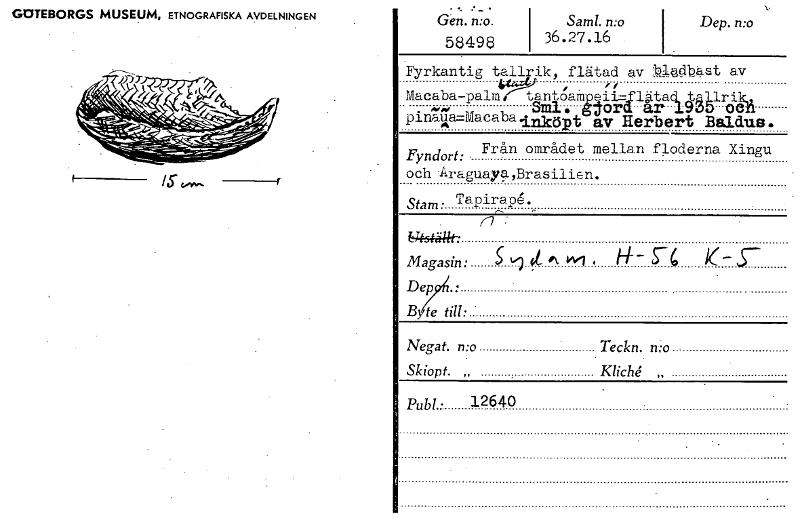 GÖTEBORGS MUSEUM, ETNOGRAFISKA AVDELNINGEN
15 cm
Gen. n:o. Saml. n:o Dep. n:o
58498 36.27.16
Fyrkantig tallrik, flätad av bladbast av
Macaba-palm. tantóampeii=flätad tallrik,
pinãũa=Macaba. Sml. gjord år 1935 och
inköpt av Herbert Baldus.
Fyndort: Från området mellan floderna Xingu
och Araguaya, Brasilien.
Stam: Tapirapé.
Utställt:
Magasin: Sydam. H-56 K-5
Depon.:
Byte till:
Negat. n:o Teckn. n:o
Skiopt. „ Kliché „
Publ.: 12640